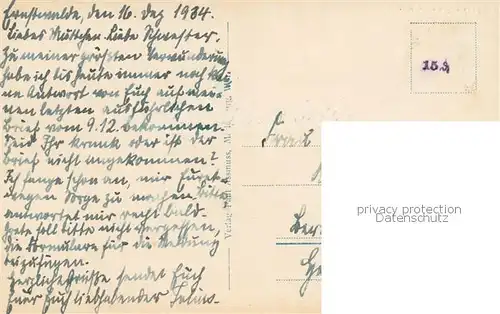 Ernstwalde, den 16. Dez 1934.
Liebes Muttchen Liebe Schwester,
Zu meiner größten Verwunderung
habe ich bis heute immer noch keine
Antwort von Euch auf meinen
letzten ausführlichen
Brief vom 9.12. bekommen.
Seid Ihr krank oder ist der
Brief nicht angekommen?
Ich fange schon an, mir Euret-
wegen Sorge zu machen. Bitte
antwortet mir recht bald.
Grete soll bitte nicht vergessen,
die Formulare für die Meldung
beizufügen.
Herzliche Grüße sendet Euch
Euer Euch liebhabender
Verlag
Frau
privacy protection
Datenschutz